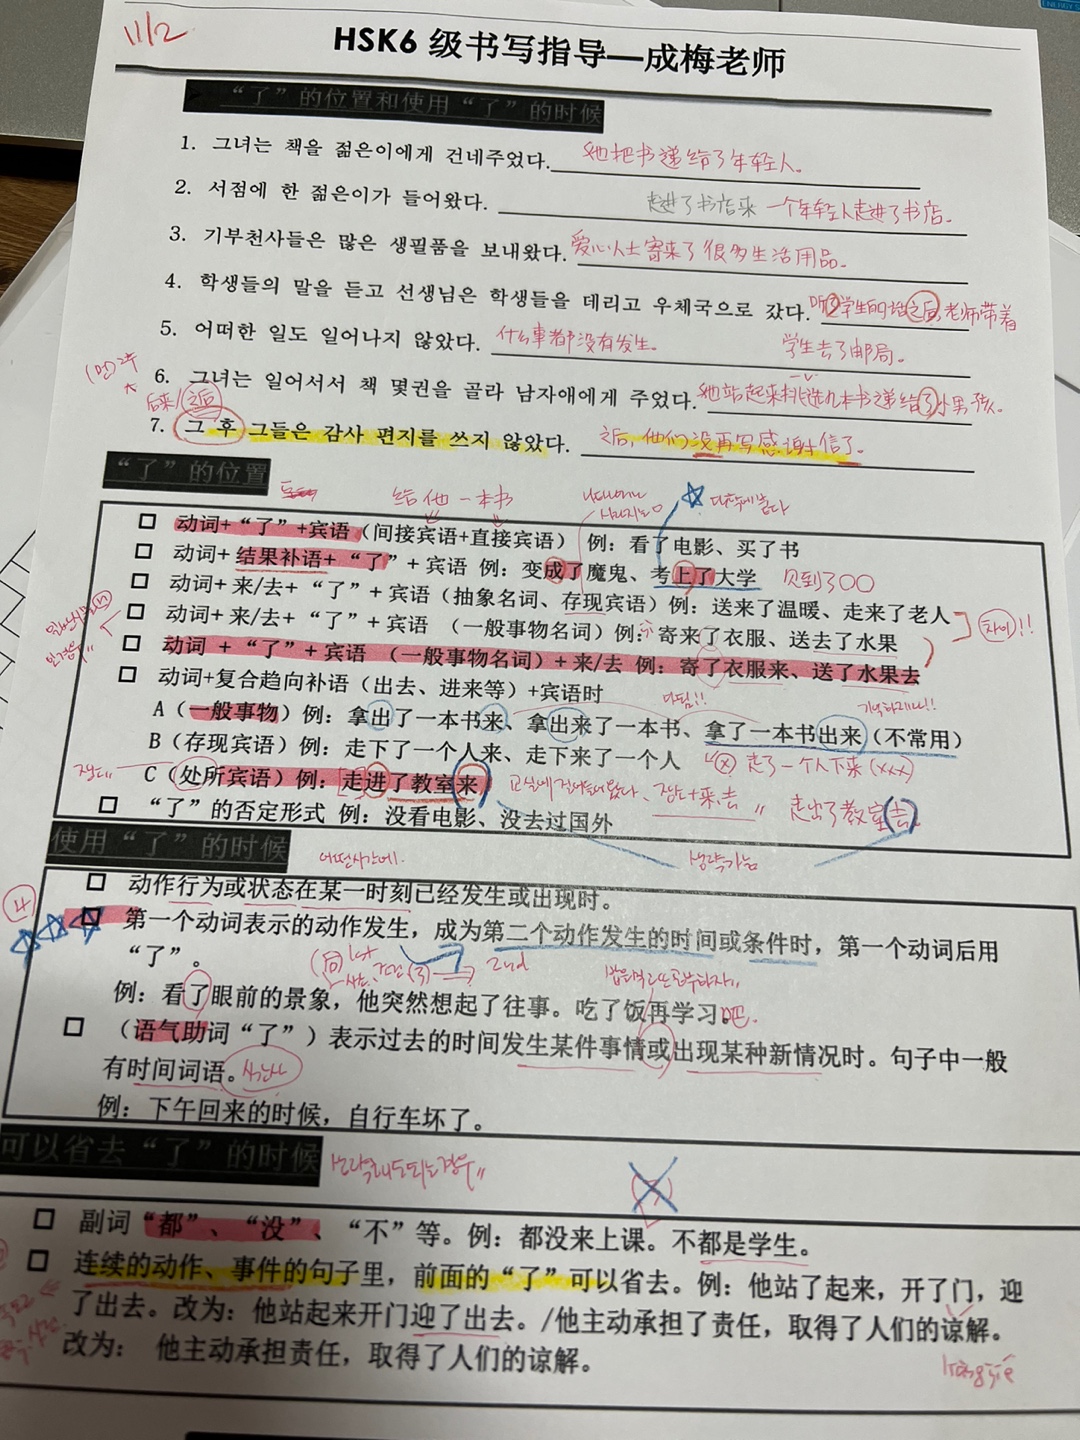 11/2
HSK6 级书写指导—成梅老师
“了”的位置和使用“了”的时候
1. 그녀는 책을 젊은이에게 건네주었다. 她把书递给了年轻人。
2. 서점에 한 젊은이가 들어왔다. 走进了书店来 一个年轻人走进了书店。
3. 기부천사들은 많은 생필품을 보내왔다. 爱心人士寄来了很多生活用品。
4. 학생들의 말을 듣고 선생님은 학생들을 데리고 우체국으로 갔다. 听了学生的话之后，老师带着
学生去了邮局。
5. 어떠한 일도 일어나지 않았다. 什么事都没有发生。
6. 그녀는 일어서서 책 몇권을 골라 남자애에게 주었다. 她站起来挑选几本书递给了小男孩。
后来/之后
7. 그 후 그들은 감사 편지를 쓰지 않았다. 之后，他们没再写感谢信了。
“了”的位置
给他一本书
□ 动词+“了”+宾语（间接宾语+直接宾语） 例：看了电影、买了书
□ 动词+ 结果补语+“了”+ 宾语 例：变成了魔鬼、考上了大学
□ 动词+ 来/去+“了”+ 宾语（抽象名词、存现宾语）例：送来了温暖、走来了老人
□ 动词+ 来/去+“了”+ 宾语 （一般事物名词）例：寄来了衣服、送去了水果
차이!!
□ 动词 +“了”+ 宾语 （一般事物名词）+ 来/去 例：寄了衣服来、送了水果去
□ 动词+复合趋向补语（出去、进来等）+宾语时
A（一般事物）例：拿出了一本书来、拿出来了一本书、拿了一本书出来（不常用）
B（存现宾语）例：走下了一个人来、走下来了一个人 走了一个人下来 (xxx)
C（处所宾语）例：走进了教室来 走出了教室(去)
□ “了”的否定形式 例：没看电影、没去过国外
생략가능
使用“了”的时候
□ 动作行为或状态在某一时刻已经发生或出现时。
□ 第一个动词表示的动作发生，成为第二个动作发生的时间或条件时，第一个动词后用
“了”。
2nd
例：看了眼前的景象，他突然想起了往事。吃了饭再学习吧.
□ （语气助词“了”）表示过去的时间发生某件事情或出现某种新情况时。句子中一般
有时间词语。
例：下午回来的时候，自行车坏了。
可以省去“了”的时候
□ 副词“都”、“没”、“不”等。例：都没来上课。不都是学生。
□ 连续的动作、事件的句子里，前面的“了”可以省去。例：他站了起来，开了门，迎
了出去。改为：他站起来开门迎了出去。/他主动承担了责任，取得了人们的谅解。
改为： 他主动承担责任，取得了人们的谅解。